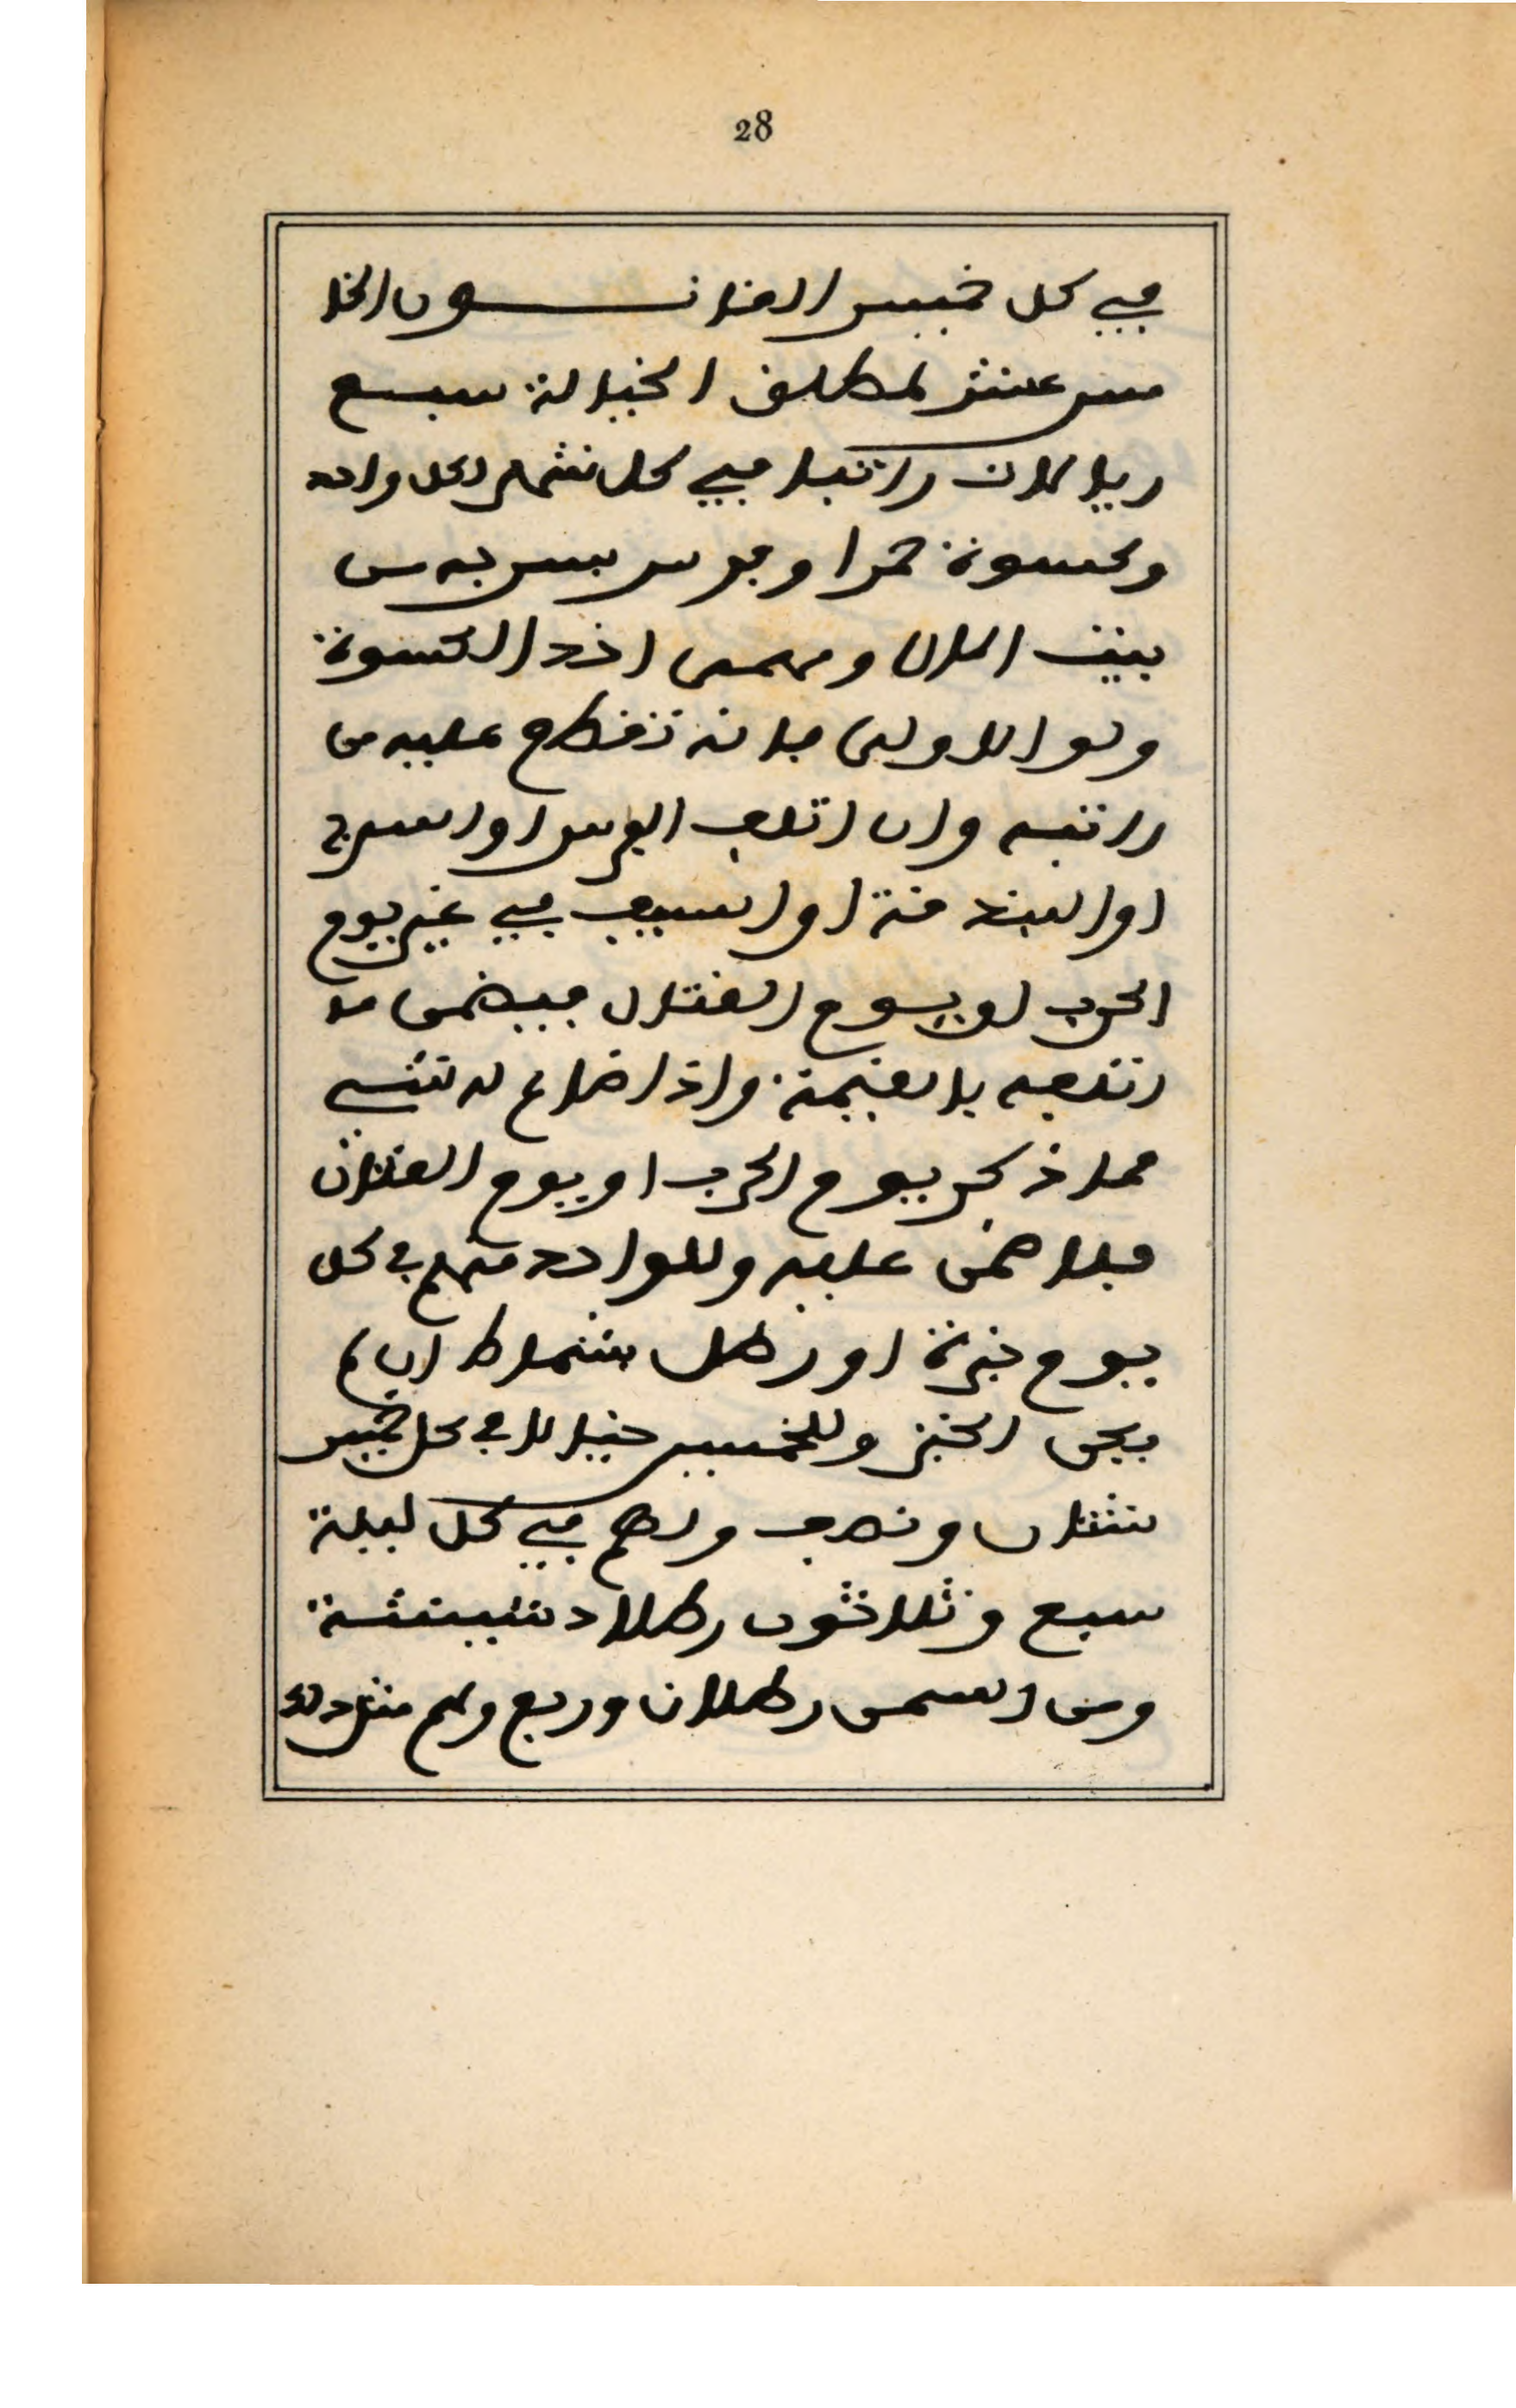 28
في كل خميس القانـــون الخا
مس عشر لمطلق الخيالة سبع
ريالات راتبا في كل شهر لكل واحد
وكسوة حمرا وفرس بسرجه من
بيت المال ومهمى اخذ الكسوة
ولو الاولى فانه تقطع عليه من
راتبه وان اتلف الفرس او السرج
او البندقة او السيف في غير يوم
الحرب او يوم القتال فيضمن ما
اتلفه بالقيمة واذا ضاع له شي
مما ذكر يوم الحرب او يوم القتال
فلا ضمن عليه وللواحد منهم في كل
يوم خبزة او رطل بشماط ان لم
يكن الخبز وللخمسين خيالا في كل خميس
شتان ونصف ولهم في كل ليلة
سبع وثلاثون رطلا دشيشة
ومن السمن رطلان وربع ولهم مثل ذلك